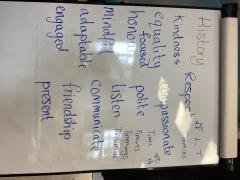 History
Kindness Respect
equality compassionate
focused
honour polite
mindful listen
adaptable communicate
engaged friendship
present